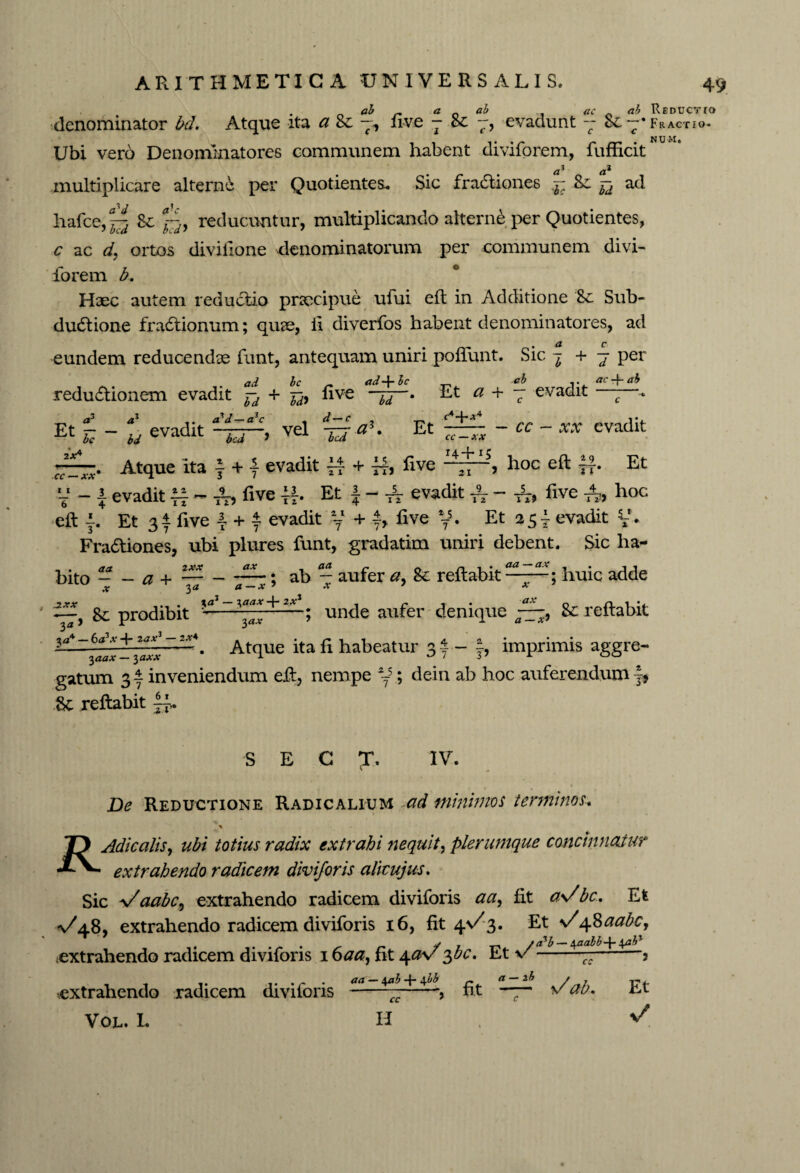 ARITHMETICA UNIVERSALIS. 49
denominator bd. Atque ita a & ab/c, ſive a/1 & ab/c, evadunt ac/c & ab/c.
REDUCTIO FRACTIONUM.
Ubi verò Denominatores communem habent diviſorem, ſufficit
multiplicare alternè per Quotientes. Sic fractiones a³/bc & a³/bd ad
haſce, a³d/bcd & a³c/bcd, reducuntur, multiplicando alternè per Quotientes,
c ac d, ortos diviſione denominatorum per communem divi-
ſorem b.
Hæc autem reductio præcipuè uſui eſt in Additione & Sub-
ductione fractionum; quæ, ſi diverſos habent denominatores, ad
eundem reducendæ ſunt, antequam uniri poſſunt. Sic a/b + c/d per
reductionem evadit ad/bd + bc/bd, ſive (ad+bc)/bd. Et a + ab/c evadit (ac+ab)/c.
Et a³/bc − a³/bd evadit (a³d−a³c)/bcd, vel (d−c)/bcd a³. Et (c⁴+x⁴)/(cc−xx) − cc − xx evadit
2x⁴/(cc−xx). Atque ita 2/3 + 5/7 evadit 14/21 + 15/21, ſive (14+15)/21, hoc eſt 29/21. Et
11/6 − 3/4 evadit 22/12 − 9/12, ſive 13/12. Et 3/4 − 5/12 evadit 9/12 − 5/12, ſive 4/12, hoc
eſt 1/3. Et 3 4/7 ſive 3/1 + 4/7 evadit 21/7 + 4/7, ſive 25/7. Et 25 1/2 evadit 51/2.
Fractiones, ubi plures ſunt, gradatim uniri debent. Sic ha-
bito aa/x − a + 2xx/3a − ax/(a−x); ab aa/x aufer a, & reſtabit (aa−ax)/x; huic adde
2xx/3a, & prodibit (3a³−3aax+2x³)/3ax; unde aufer denique ax/(a−x), & reſtabit
(3a⁴−6a³x+2ax³−2x⁴)/(3aax−3axx). Atque ita ſi habeatur 3 4/7 − 2/3, imprimis aggre-
gatum 3 4/7 inveniendum eſt, nempe 25/7; dein ab hoc auferendum 2/3,
& reſtabit 61/21.
SECT. IV.
De REDUCTIONE RADICALIUM ad minimos terminos.
RAdicalis, ubi totius radix extrahi nequit, plerumque concinnatur
extrahendo radicem diviſoris alicujus.
Sic √aabc, extrahendo radicem diviſoris aa, fit a√bc. Et
√48, extrahendo radicem diviſoris 16, fit 4√3. Et √48aabc,
extrahendo radicem diviſoris 16aa, fit 4a√3bc. Et √(a³b−4aabb+4ab³)/cc,
extrahendo radicem diviſoris (aa−4ab+4bb)/cc, fit (a−2b)/c √ab. Et
VOL. I. H √